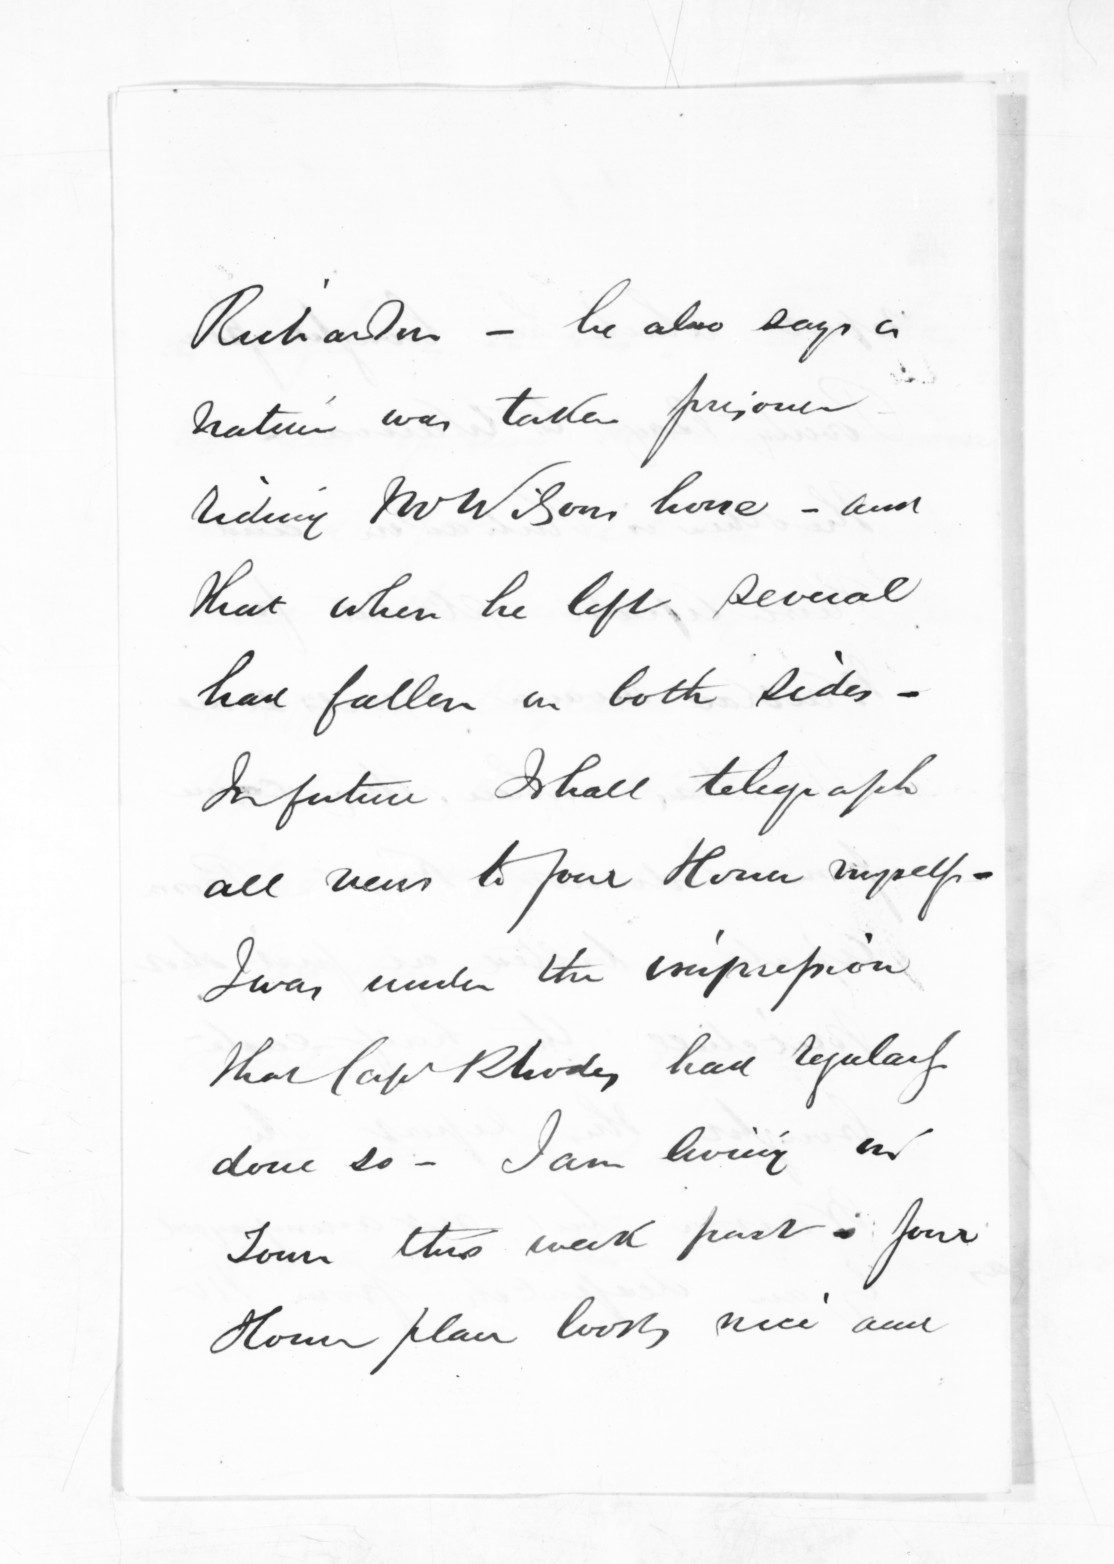 Richardson - he also says a
native was taken prisoner
riding Mr Wilsons horse - and
that when he left, several
had fallen on both sides -
In future I shall telegraph
all news to your Honor myself -
I was under the impression
that Capt Rhodes had regularly
done so - I am living in
Town this week past - your
Honor place looks nice and